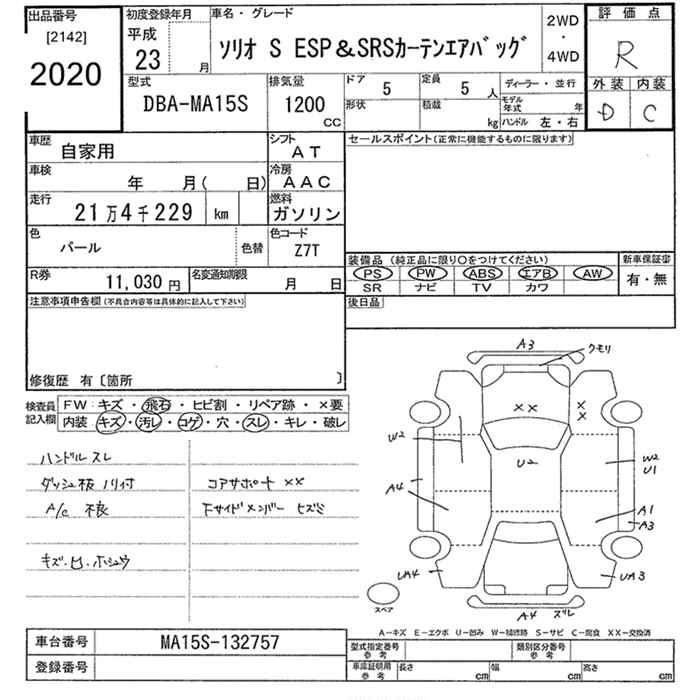 出品番号
[2142]
2020
初度登録年月
平成
23 月
車名・グレード
ソリオ S ESP&SRSカーテンエアバッグ
2WD
・
4WD
評価点
R
外装 内装
D C
型式
DBA-MA15S
排気量
1200
CC
ドア 5
定員 5 人
形状
積載 kg
ディーラー・並行
モデル年式 年
ハンドル 左・右
車歴
自家用
シフト
AT
車検
年 月( 日)
冷房
AAC
走行
21万4千229 km
燃料
ガソリン
色
パール
色替
色コード
Z7T
R券
11,030円
名変通知期限
月 日
セールスポイント(正常に機能するものに限ります)
装備品(純正品に限り○をつけてください)
PS PW ABS エアB AW
SR ナビ TV カワ
新車保証書
有・無
後日品
注意事項申告欄(不具合内容等は具体的に記入して下さい)
修復歴 有〔箇所 〕
検査員
記入欄
FW:キズ・飛石・ヒビ割・リペア跡・×要
内装:キズ・汚レ・コゲ・穴・スレ・キレ・破レ
ハンドルスレ
ダッシュ板ノリ付
A/C 不良
キズ.凹.ホシュウ
コアサポート ××
Fサイドメンバー ヒズミ
A3
クモリ
××
×
×
W2
W2
U1
U2
A4
A1
A3
UA4
UA3
A4 ズレ
スペア
A-キズ E-エクボ U-凹み W-補修跡 S-サビ C-腐食 XX-交換済
車台番号
MA15S-132757
登録番号
型式指定番号
参考
類別区分番号
参考
車庫証明用
参考
長さ cm
幅 cm
高さ cm